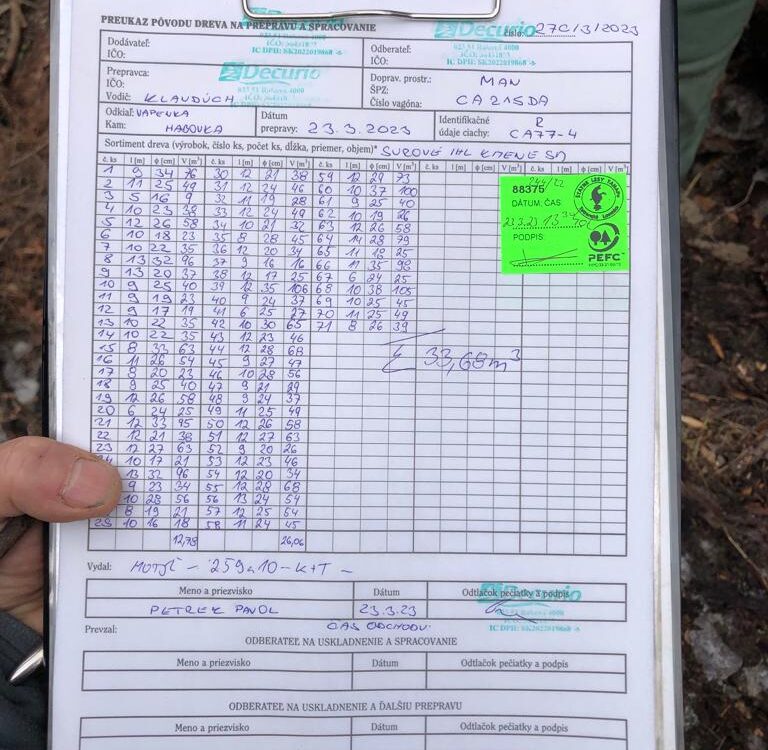 PREUKAZ PÔVODU DREVA NA PREPRAVU A SPRACOVANIE
číslo: 27C/3/2023
Decurio
Dodávateľ:
IČO:
IC DPH: SK2022019868
Odberateľ:
IČO:
Decurio
023 51 Raková 4000
IC DPH: SK2022019868
Prepravca:
IČO:
Vodič: KLAUDÚCH
Decurio
023 51 Raková 4000
IC DPH: SK2022019868
Doprav. prostr.: MAN
ŠPZ:
Číslo vagóna: CA215DA
Odkiaľ: VAPENKA
Kam: HABOVKA
Dátum
prepravy: 23.3.2023
Identifikačné R
údaje ciachy: CA77-4
Sortiment dreva (výrobok, číslo ks, počet ks, dĺžka, priemer, objem)* SUROVÉ IHL KMENE SM
č. ks l [m] φ [cm] V [m³] č. ks l [m] φ [cm] V [m³] č. ks l [m] φ [cm] V [m³] č. ks l [m] φ [cm] V [m³] č. ks l [m] φ [cm] V [m³]
1 9 34 76 30 12 21 38 59 12 29 73
2 11 25 49 31 12 24 46 60 10 37 100
3 5 16 9 32 11 19 28 61 9 25 40
4 10 23 38 33 12 24 49 62 10 19 26
5 12 26 58 34 10 21 32 63 12 26 58
6 10 18 23 35 8 28 45 64 11 28 79
7 10 22 35 36 12 20 34 65 11 18 25
8 13 32 96 37 9 16 16 66 11 35 98
9 13 20 37 38 12 17 25 67 6 24 25
10 9 25 40 39 12 35 106 68 10 38 105
11 9 19 23 40 9 24 37 69 10 25 45
12 9 17 19 41 6 25 27 70 11 25 49
13 10 22 35 42 10 30 65 71 8 26 39
14 10 22 35 43 12 23 46
15 8 33 63 44 12 28 68
16 11 26 54 45 9 27 47
17 8 20 23 46 10 28 56
18 9 25 40 47 9 21 29
19 12 26 58 48 9 24 37
20 6 24 25 49 11 25 49
21 12 33 95 50 12 26 58
22 12 21 38 51 12 27 63
23 12 27 63 52 9 20 26
10 17 21 53 12 23 46
13 32 96 54 12 20 34
9 23 34 55 12 28 68
10 28 56 56 13 24 54
8 19 21 57 12 25 54
29 10 16 18 58 11 24 45
12,78 26,06
Σ 33,68m³
88375
DÁTUM, ČAS
23.3.23 13
PODPIS
PEFC
Vydal: MOTYČ - 259a10-K+T -
Meno a priezvisko Dátum Odtlačok pečiatky a podpis
PETREK PAVOL 23.3.23
Decurio
IC DPH: SK2022019868
Prevzal: ČAS ODCHODU:
ODBERATEĽ NA USKLADNENIE A SPRACOVANIE
Meno a priezvisko Dátum Odtlačok pečiatky a podpis
ODBERATEĽ NA USKLADNENIE A ĎALŠIU PREPRAVU
Meno a priezvisko Dátum Odtlačok pečiatky a podpis